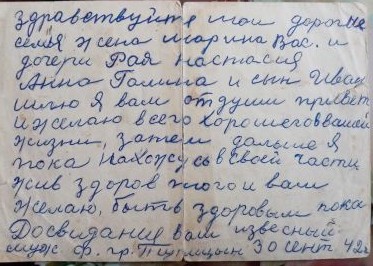 здравствуйте мои дорогие
семья жена Марина Вас. и
дочери Рая настасия
Анна Галина и сын Иван
шлю я вам от души привет
и желаю всего хорошего в вашей
жизни, затем дальше я
пока нахожусь в своей части
жив здоров того и вам
желаю, быть здоровым пока
Досвидания вам извесный
муж. ф. гр. 30 сент. 42